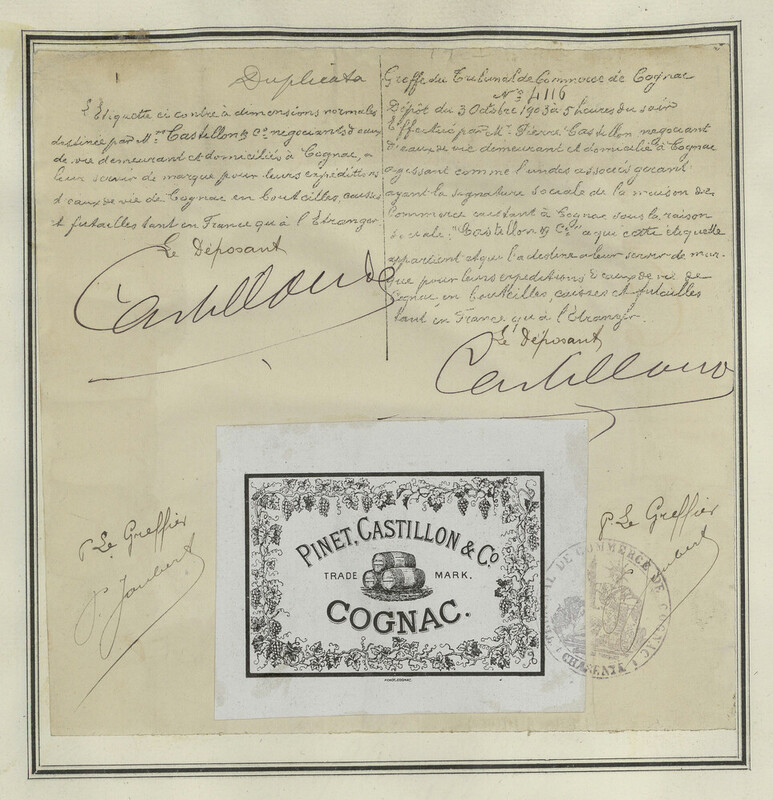 Duplicata
L'Etiquette ci contre à dimensions normales
destinée par M.rs Castillon & Cº négociants d'eaux
de vie demeurant et domiciliés à Cognac, a
leur servir de marque pour leurs expéditions
d'eaux de vie de Cognac en bouteilles, caisses
et futailles tant en France qu'à l'Etranger
Le Déposant
Castillon
Greffe du Tribunal de Commerce de Cognac
Nº 4116
Dépôt du 3 Octobre 1903 à 5 heures du soir
Effectué par Mr. Pierre Castillon négociant
d'eaux de vie demeurant et domicilié à Cognac
agissant comme l'un des associés gérant
ayant la signature sociale de la maison de
Commerce existant à Cognac sous la raison
sociale: "Castillon & Cº" a qui cette étiquette
appartient et qui l'a destinée a leur servir de mar-
que pour leurs expéditions d'eaux de vie de
Cognac en bouteilles, caisses et futailles
tant en France qu'à l'Etranger.
Le Déposant
Castillon
P. Le Greffier
P. Le Greffier
PINET, CASTILLON & Cº
TRADE MARK.
COGNAC.
TRIBUNAL DE COMMERCE DE COGNAC
CHARENTE